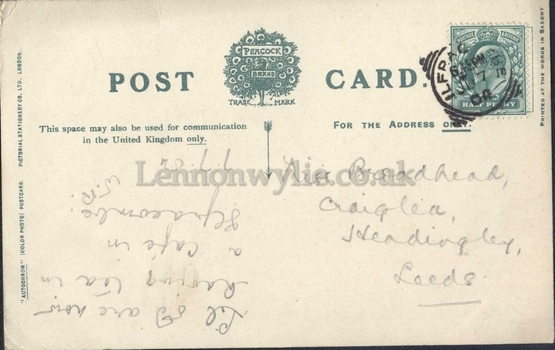 POST CARD.
PEACOCK
BRAND
TRADE MARK
This space may also be used for communication
in the United Kingdom only.
FOR THE ADDRESS ONLY.
"AUTOCHROM" (COLOR PHOTO) POSTCARD. PICTORIAL STATIONERY CO. LTD. LONDON.
PRINTED AT THE WORKS IN SAXONY
HALF PENNY
ILFRAC
04
Lennonwylie.co.uk
Miss Broadhead,
Craiglea,
Headingley,
Leeds.
Lil & are now
having tea in
a Café in
Ilfracombe.
W.R.